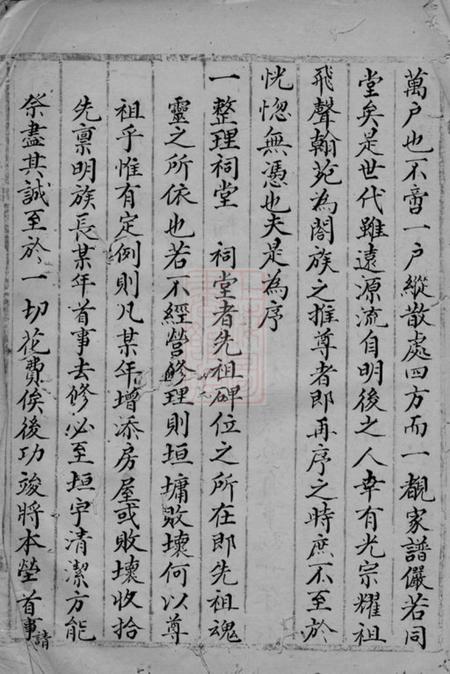 萬户也不啻一户縱散處四方而一覩家譜儼若同
堂矣是世代雖遠源流自明後之人幸有光宗耀祖
飛聲翰苑為閤族之推尊者即再序之時庶不至於
恍惚無憑也夫是為序
一整理祠堂 祠堂者先祖碑位之所在即先祖魂
靈之所依也若不經營修理則垣墉敗壞何以尊
祖乎惟有定例則凡某年增添房屋或敗壞收拾
先稟明族長某年首事去修必至垣宇清潔方能
祭盡其誠至於一切花費俟後功竣將本塋首事請